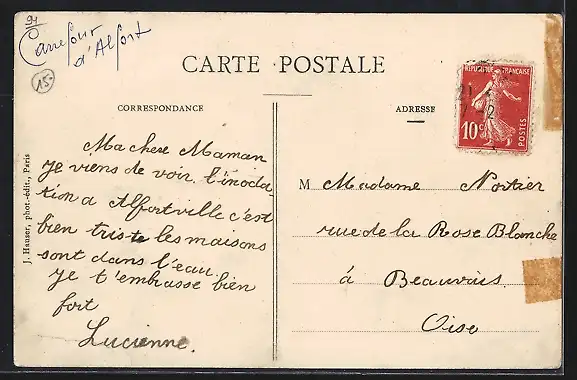 94
Carrefour
d'Alfort
15
CARTE POSTALE
CORRESPONDANCE
ADRESSE
RÉPUBLIQUE FRANÇAISE
10c
POSTES
21
Ma chere Maman
je viens de voir l'inoda-
tion a Alfortville c'est
bien triste les maisons
sont dans l'eau.
je t'embrasse bien
fort
Lucienne.
M Madame Poitier
rue de la Rose Blanche
à Beauvais.
Oise
J. Hauser, phot.-édit., Paris